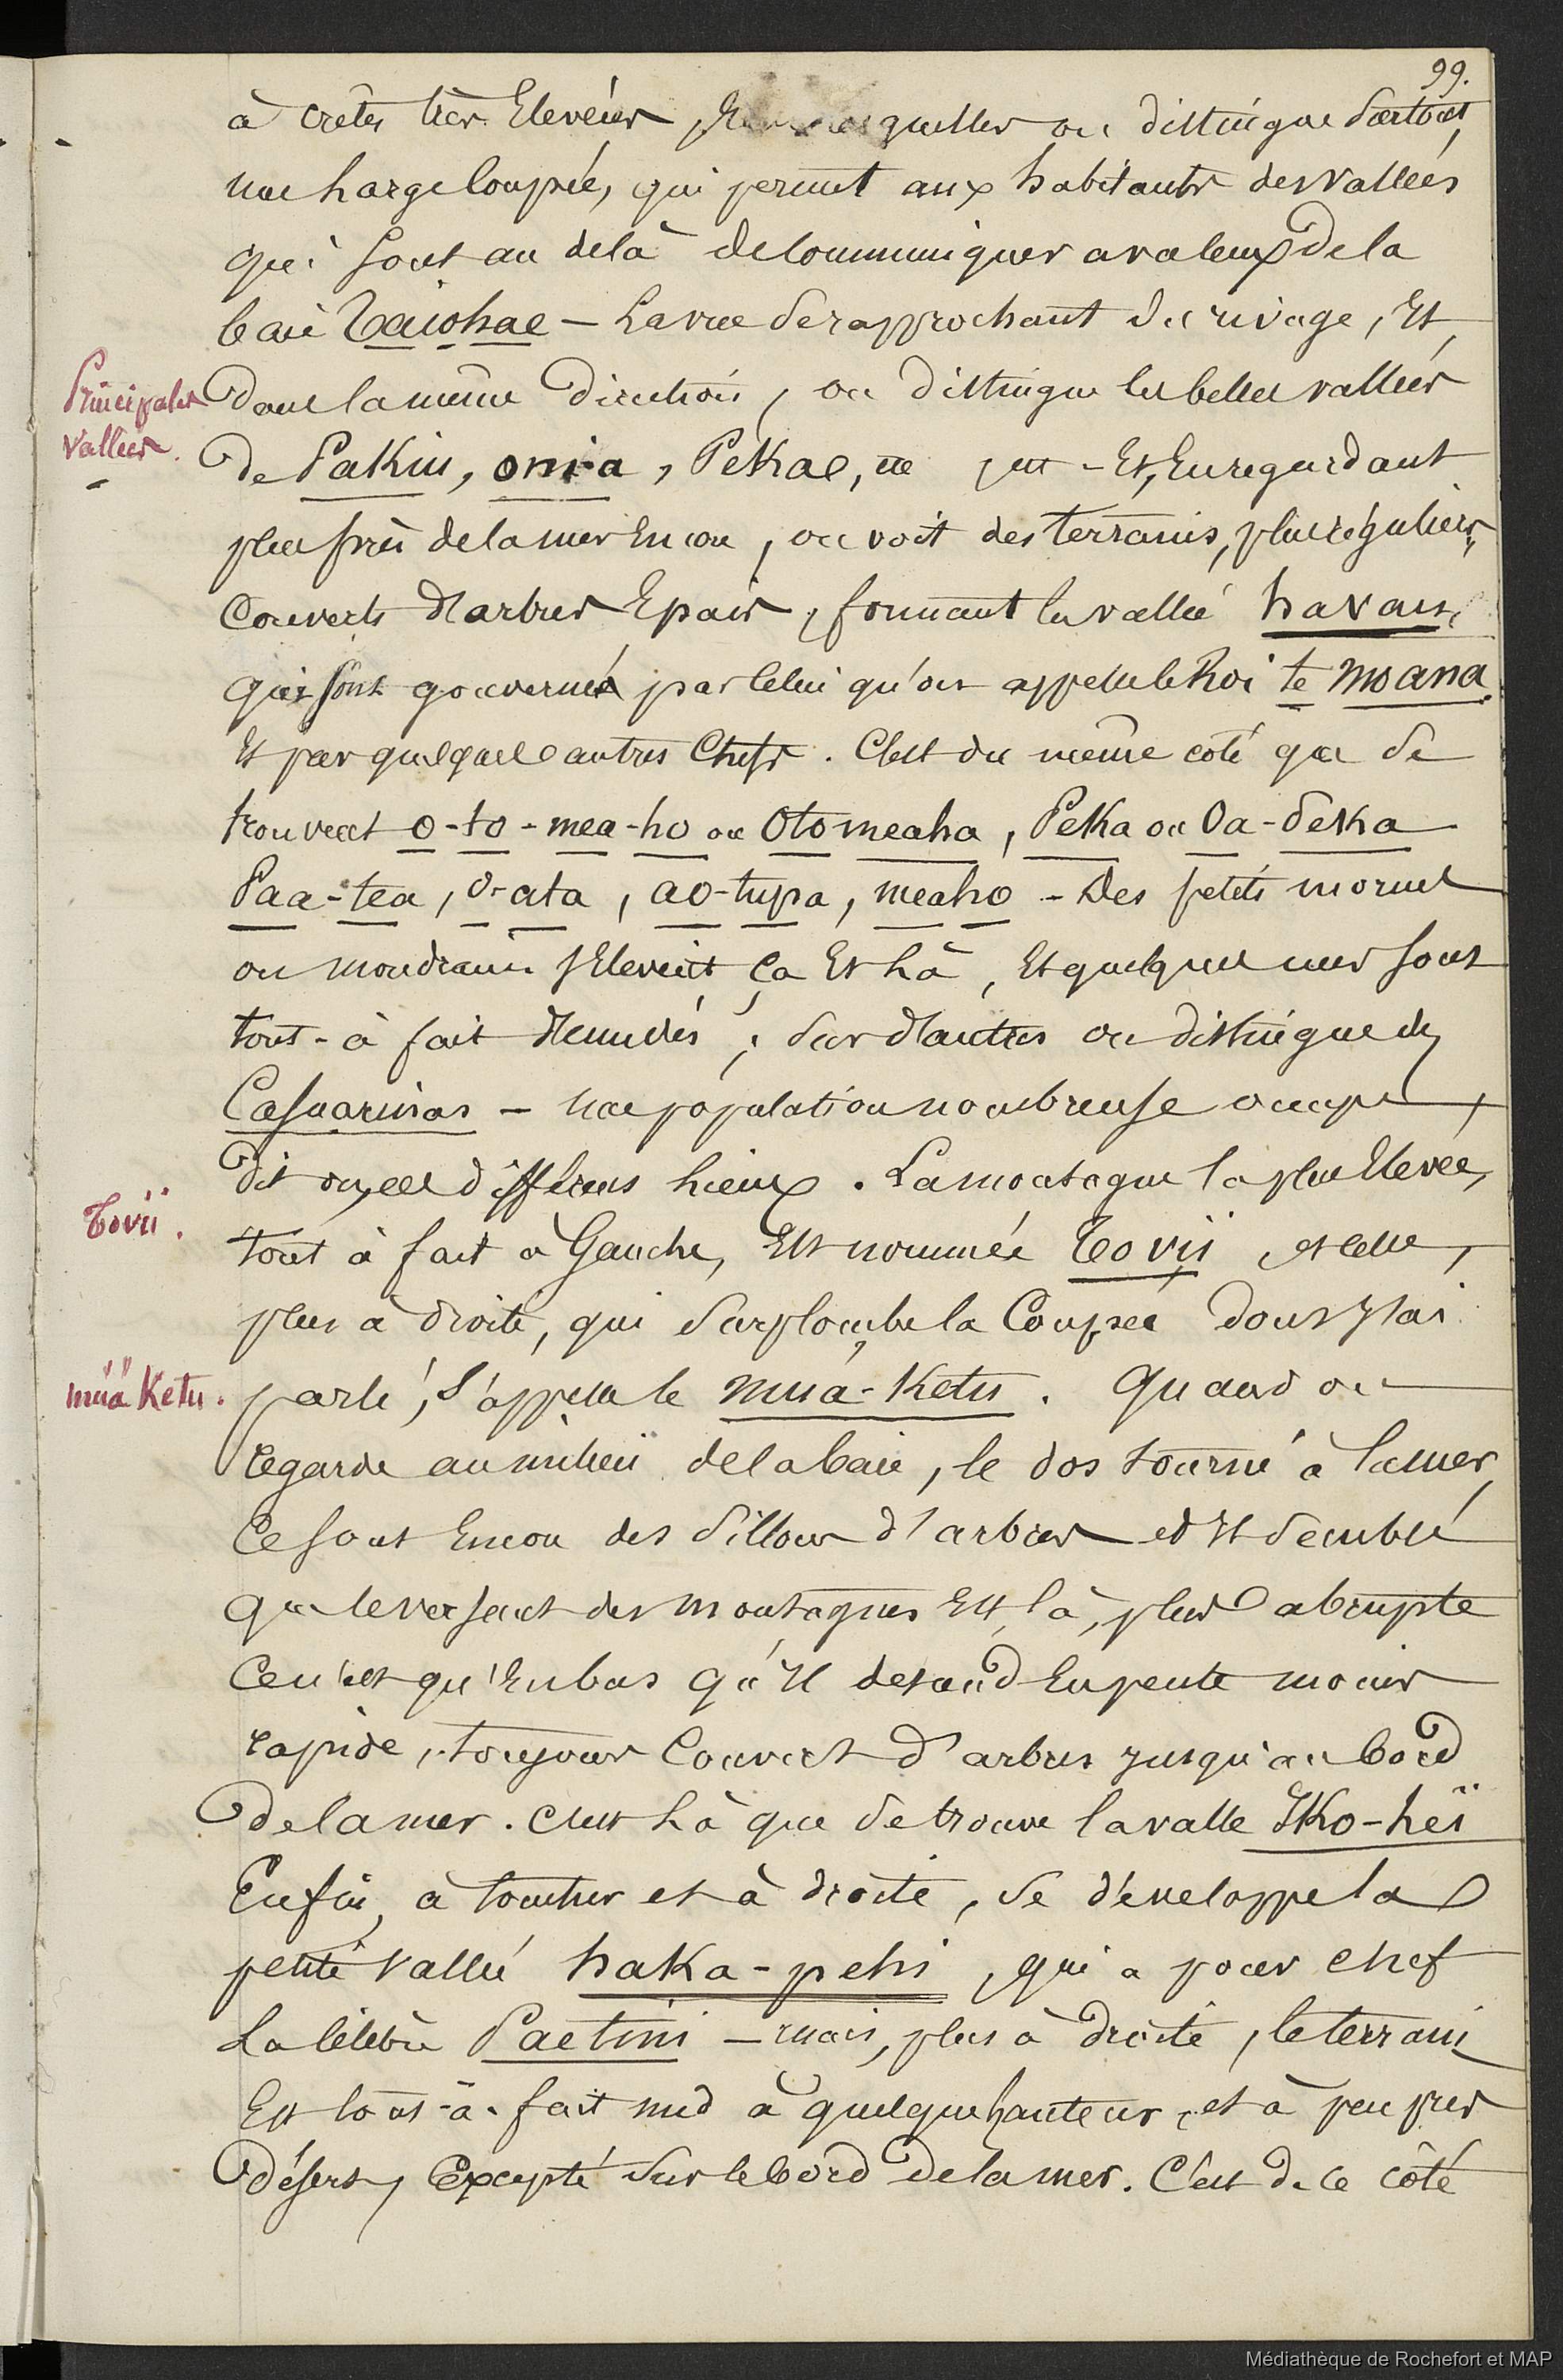 99.
à crêtes très Elevées, quelles on distingue surtout,
une large Coupée, qui permet aux habitants des vallées
qui sont au delà de Communiquer avec ceux de la
baie Taiohae — La vue se rapprochant du rivage, Et,
Principales
Vallées.
dans la même direction, on distingue les belles vallées
de Pakiu, onia, Pekae, etc etc - Et, En regardant
plus près de la mer Encore, on voit des terrains, plus réguliers,
Couverts d'arbres Epais, formant la vallée havau,
qui sont gouvernés par Celui qu'on appelle le Roi te moana
Et par quelques autres Chefs. C'est du même côté que se
trouvent o-to-mea-ho ou Otomeaha, Peka ou Oa-deka
Paa-tea, o-ata, ao-tupa, meaho - Des petits mornes
ou mondrains s'Elevent ça Et Là, Et quelques uns sont
tout-à fait dénudés; sur d'autres on distingue des
Casuarinas — Une population nombreuse occupe,
dit on, ces différens Lieux. La montagne la plus Elevée,
Tovii.
tout à fait à Gauche, Est nommée Tovii et Celle,
plus à droite, qui surplombe la Coupée dont J'ai
müä Ketu.
parlé, s'appelle le mua-Ketu. Quand on
regarde au milieu de la baie, le dos tourné à la mer,
Ce sont Encore des sillons d'arbres et Il semble
que le versant des montagnes Est, là, plus abrupte
Ce n'est qu'En bas qu'Il descend En pente moins
rapide, toujours Couvert d'arbres jusqu'au bord
de la mer. C'est Là que se trouve la vallé Iko-heï
Enfin, à toucher et à droite, se développe la
petite Vallée haka-pehi, qui a pour chef
La Célèbre Paetini — mais, plus à droite, le terrain
Est tout-à-fait nud à quelque hauteur, et à peu près
désert, Excepté sur le bord de la mer. C'est de ce côté
Médiathèque de Rochefort et MAP